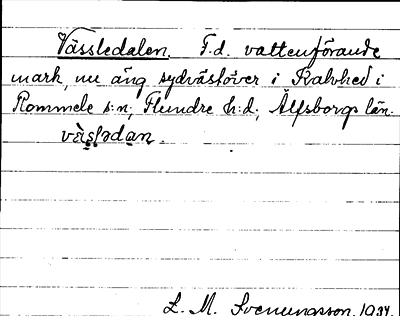 Vässledalen. F.d. vattenförande
mark, nu äng sydväst över i Kalvhed i
Rommele s:n, Flundre h:d, Älfsborgs län.
L. M. Svenungsson. 1934.